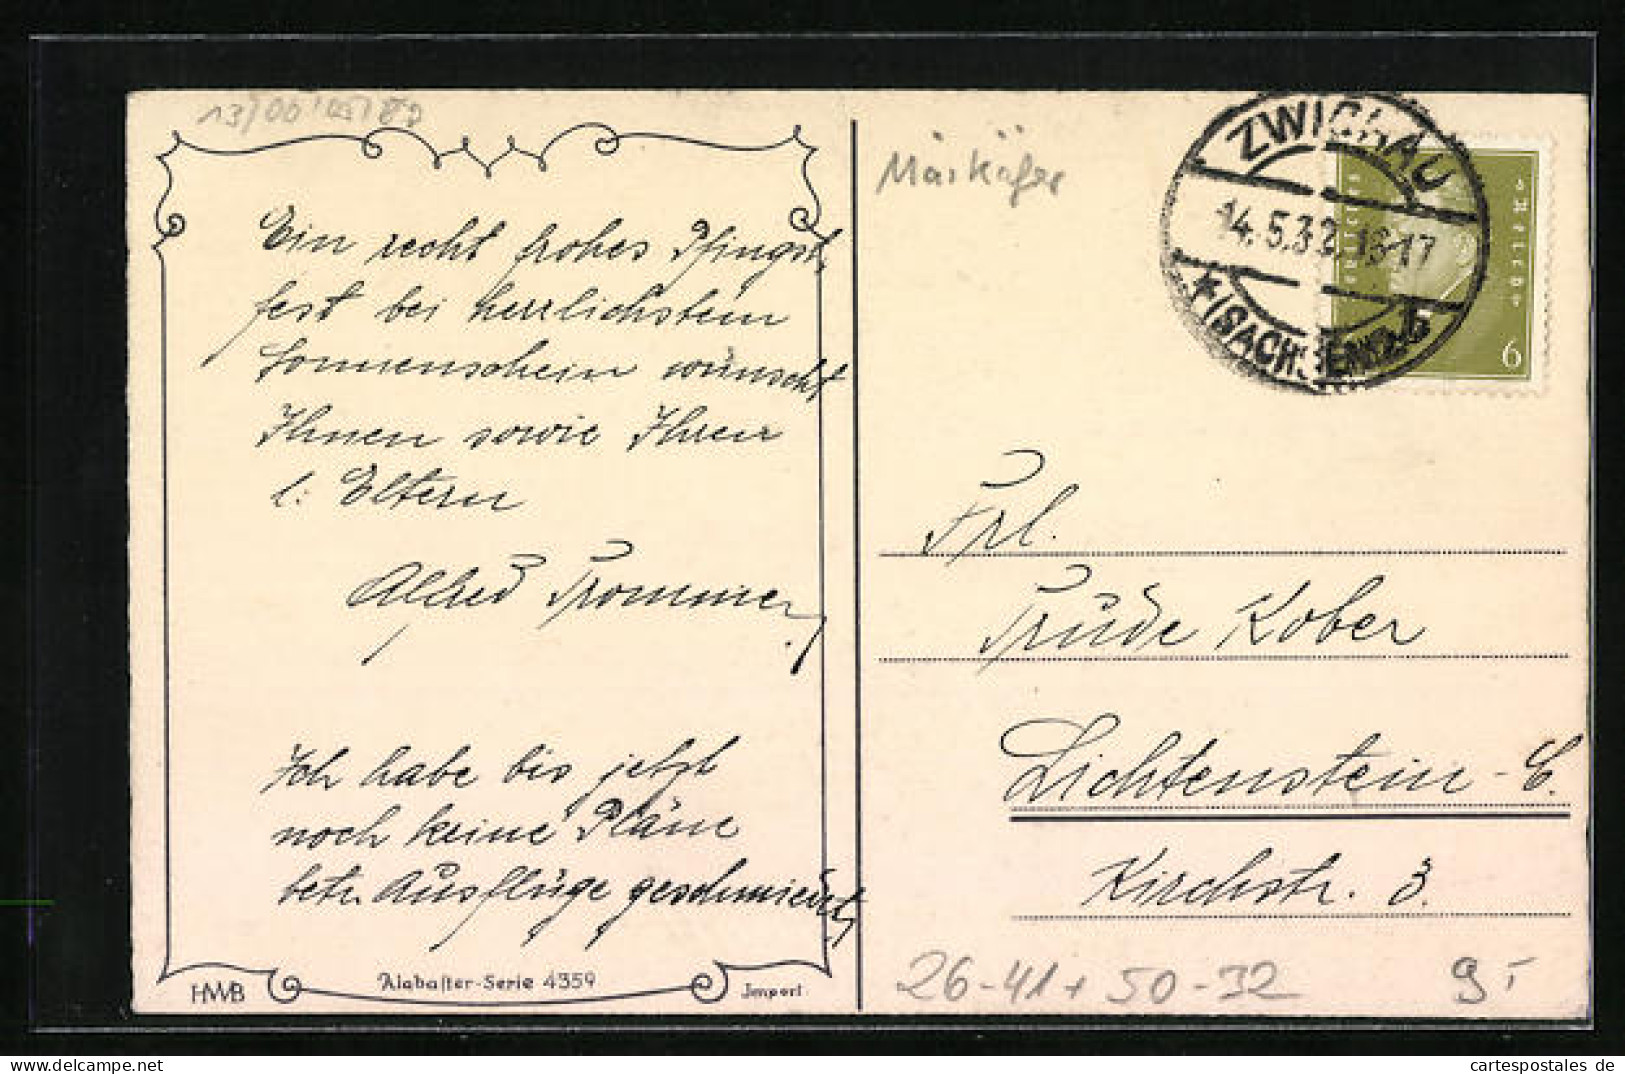 Ein recht frohes Pfingst-
fest bei herrlichstem
Sonnenschein wünscht
Ihnen sowie Ihren
l. Eltern
Alfred Trommer
Ich habe bis jetzt
noch keine Pläne
betr. Ausflüge geschmiedet,
HWB
Alabaster-Serie 4359
Import
Maikäfer
ZWICKAU
14.5.32.16-17
* (SACHSEN)
DEUTSCHES REICH
6
Frl.
Trude Kober
Lichtenstein-C.
Kirchstr. 3.
26-41+50-32
9,-
cartespostales de